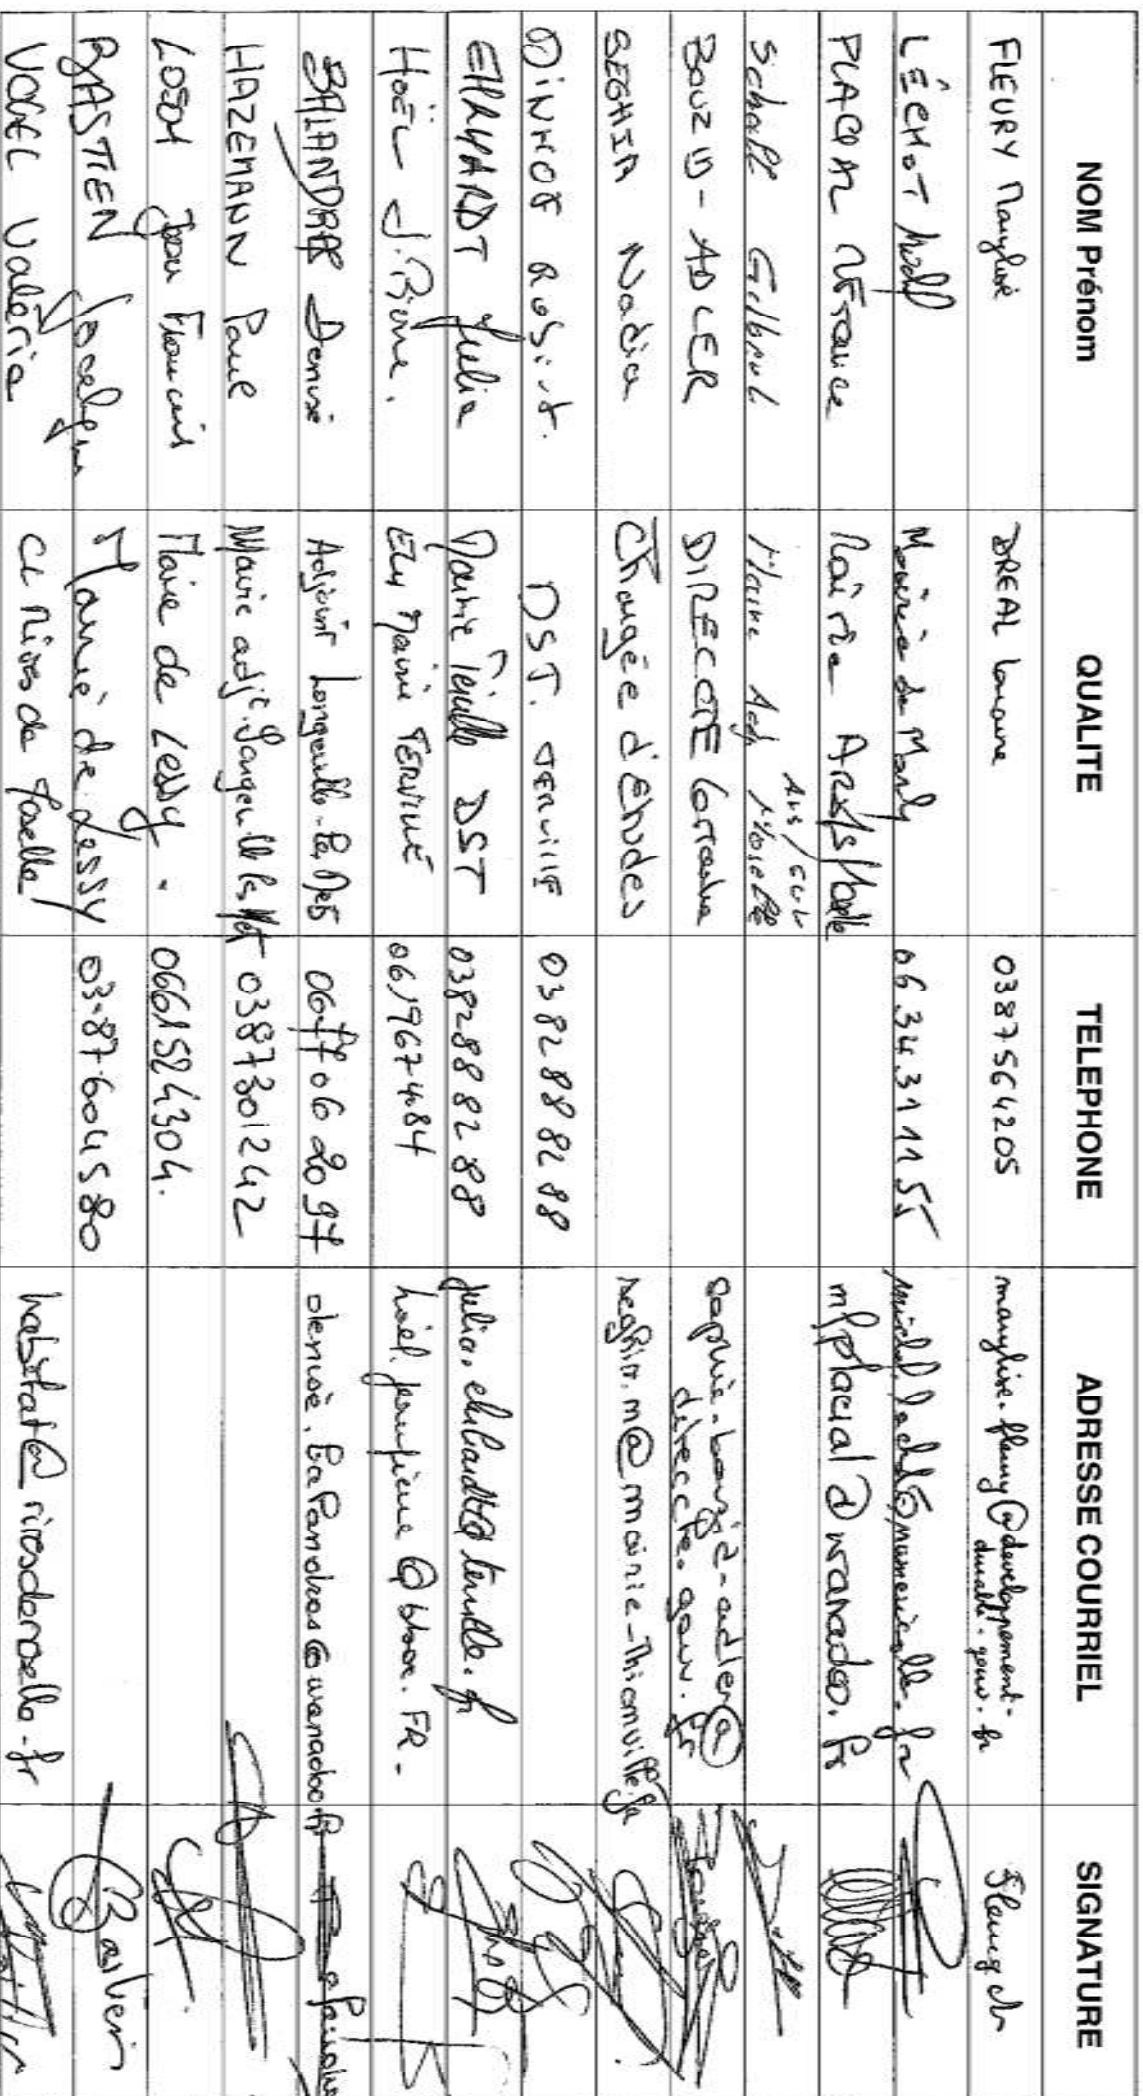 NOM Prénom QUALITE TELEPHONE ADRESSE COURRIEL SIGNATURE
FLEURY Marylise DREAL Lorraine 0387564205 marylise.fleury@developpement-
durable.gouv.fr
LÉCHOT Mairie de Marly 06 34 31 11 55
PLACIAL Mairie Ars/s/Moselle mfplacial@wanadoo.fr
Schall Maire Adj Ars/sur
Moselle
BOUZID-ADLER DIRECCTE Lorraine sophie.bouzid-adler@
direccte.gouv.fr
SEGHIR Nadia Chargée d'Etudes seghir.n@mairie-thionville.fr
DINHOF Robert. DST. TERVILLE 0382888288
EHRHARDT Julia Mairie Terville DST 0382888288 julia.ehrhardt@terville.fr
HOËL J. Pierre. Elu Mairie TERVILLE 0619674684
BALANDRAS Denise Adjoint Longeville-les-Metz 0677062097 denise.balandras@wanadoo.fr
HAZEMANN Paul Mairie adjt. Longeville les Metz 0387301242
LOSCH Jean Francois Maire de Lessy. 0661524304.
BASTIEN Jocelyne Mairie de Lessy 03.87.60.45.80
VOGEL Valérie CC Rives de Moselle habitat@rivesdemoselle.fr